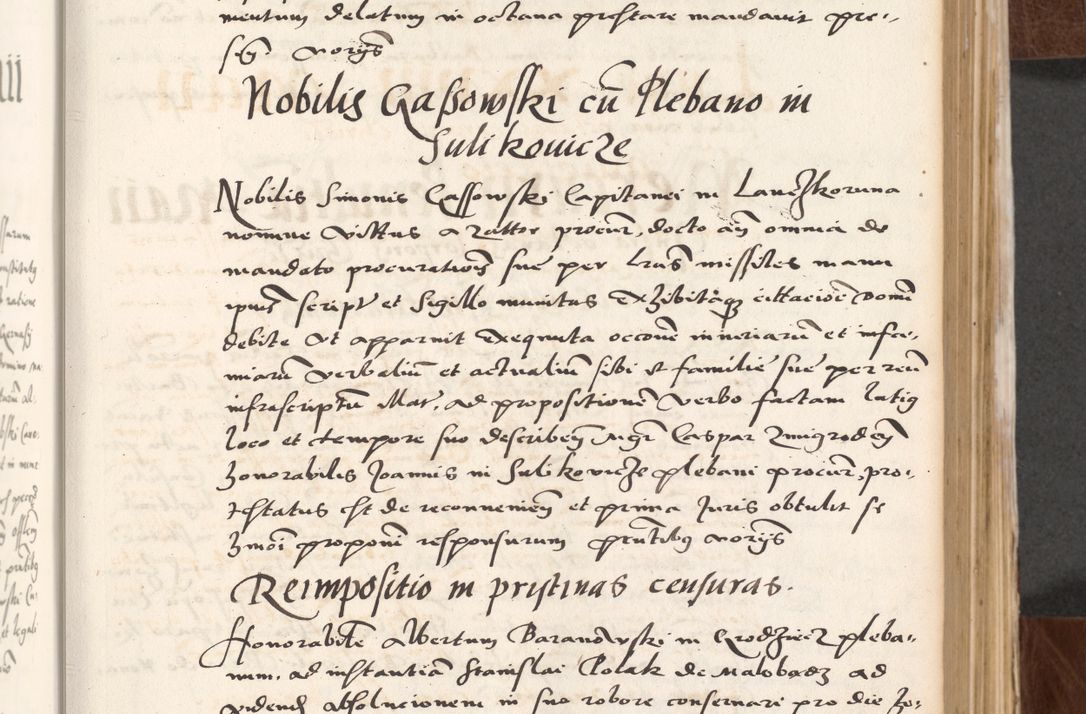 mentum delatum in octava prestare mandavit pre-
sen notarijs
Nobilis Gassowski cum Plebano in
Sulikouicze
Nobilis Simonis Gassowski Capitanei in Lanczkoruna
nomine procur, docto omnia de
mandato procurationis sue per Lras missiles manu
ipius script et Sigillo munitus Exhibitaque citacione Domi
debite ut apparuit Exequuta occone iniuriarum et infa-
miarum verbalium et actualium sibi et familie sue per reum
infrascriptum illat, ad propositionem verbo factam lutig
loco et tempore suo describen Mgr Caspar Zmigroden
honorabilis Joannis in Sulikovicze plebani procur, pro-
testatus est de reconueniem et prima Juris obtulit se
hmoi proponi responsurum pntibus notarijs
Reimpositio in pristinas censuras.
Honorabile Albertum Baranowski in Grodziecz pleba-
num, ad instantiam Stanislai Polak de Malobadz ad
absolucionem in suo robore conservari pro die